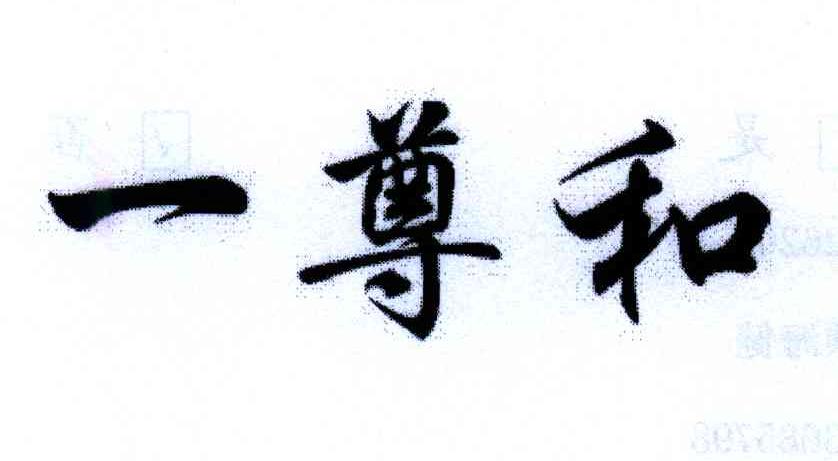 一尊和